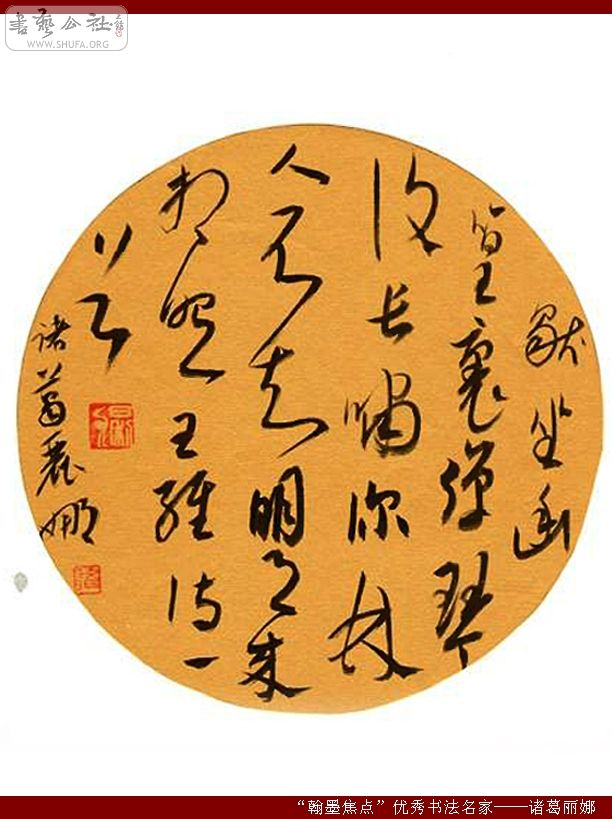 書藝公社
WWW.SHUFA.ORG
獨坐幽
篁裏彈琴
復長嘯深林
人不知明月來
相照王維诗一
首
诸葛麗娜
“翰墨焦点”优秀书法名家——诸葛丽娜